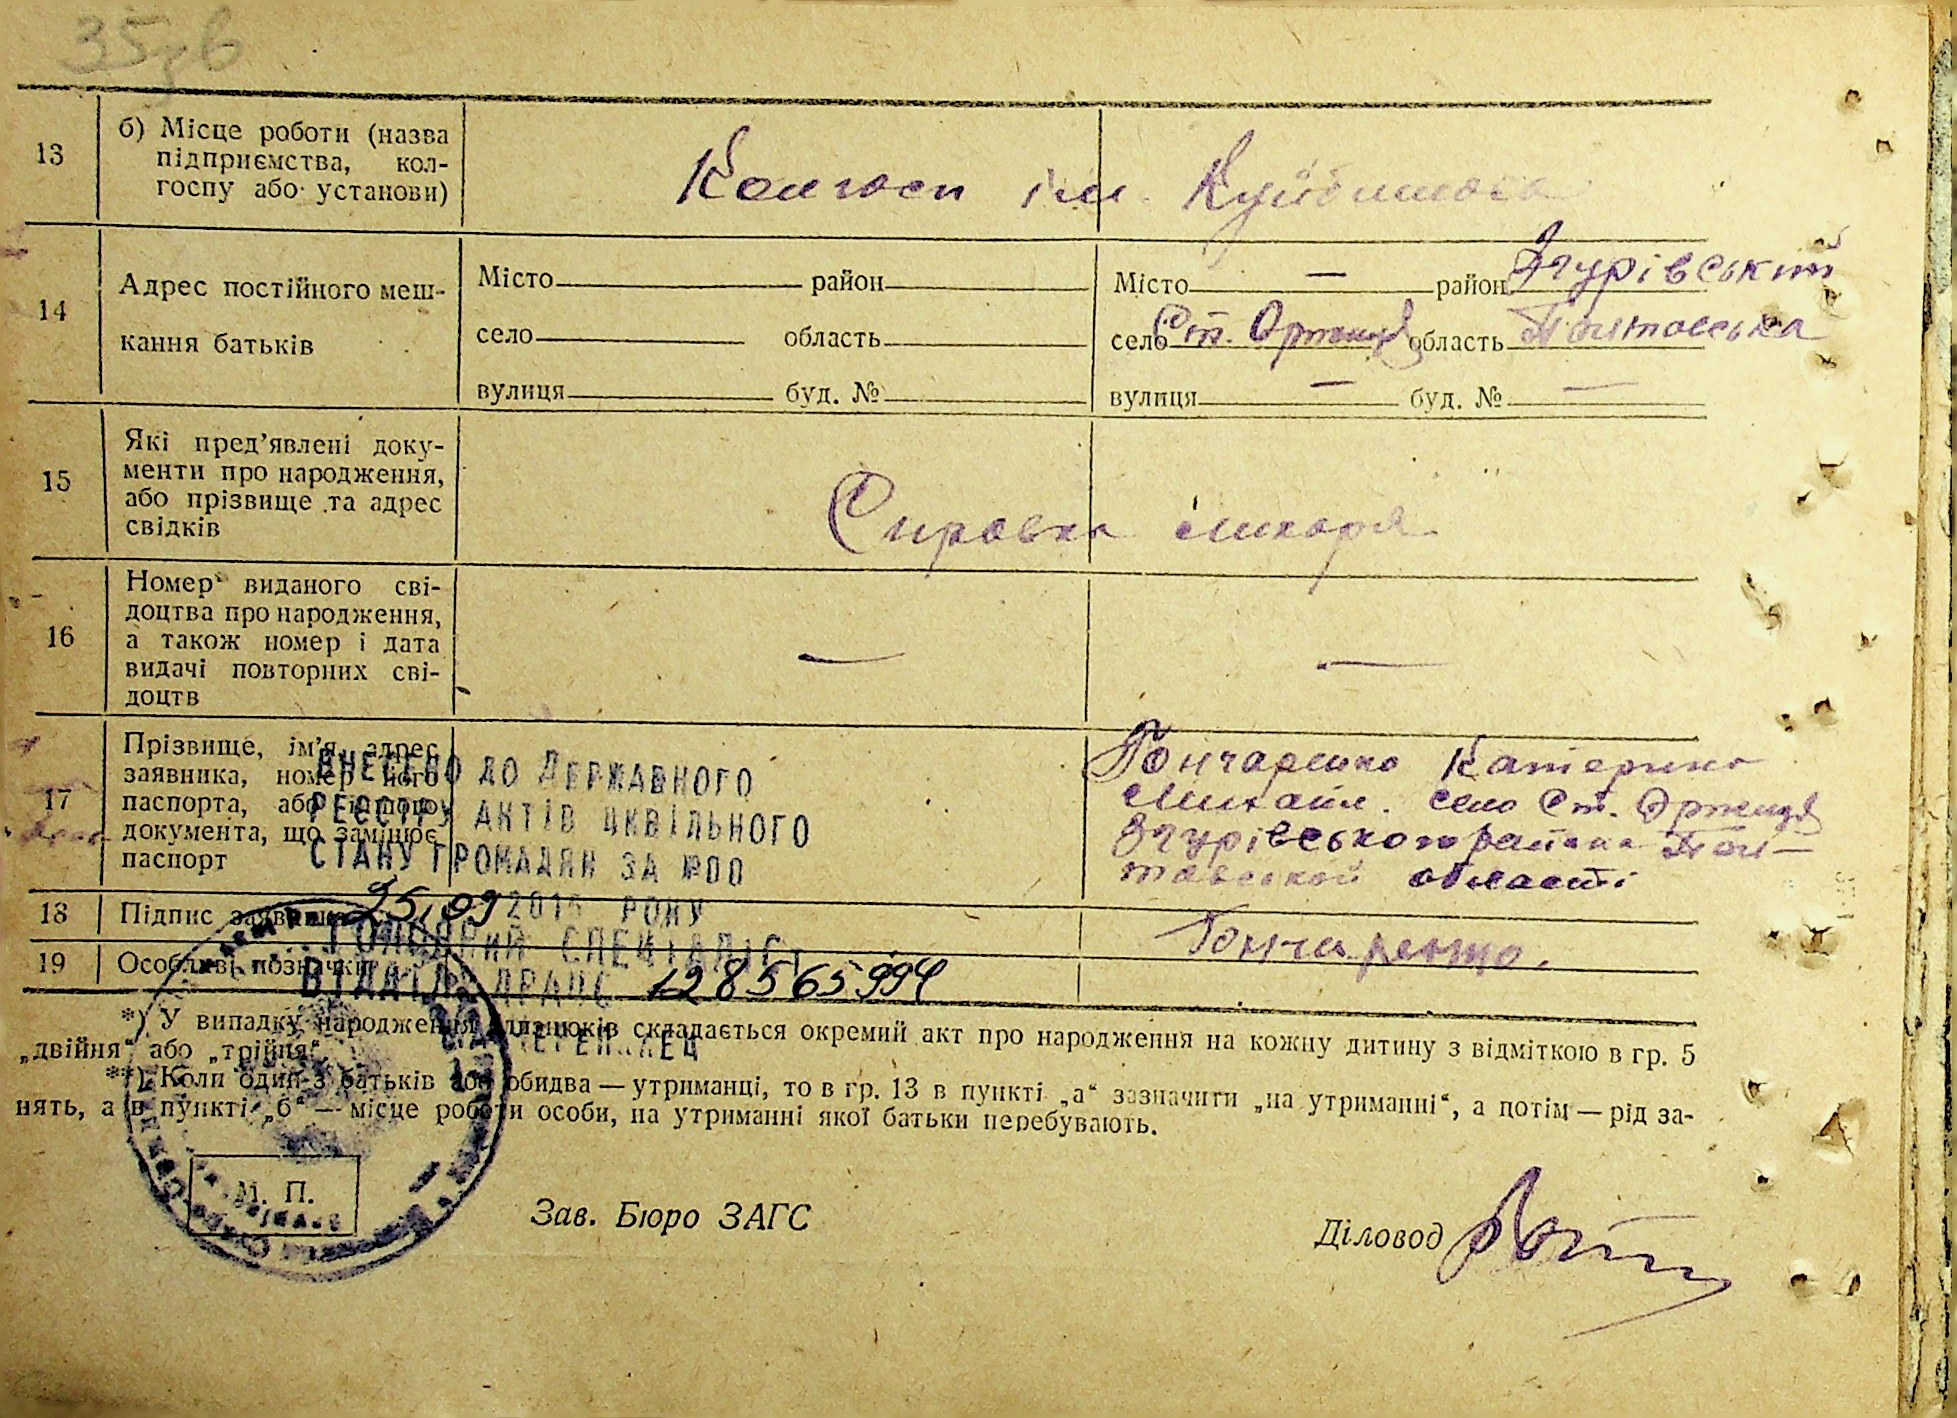 35зв
13
б) Місце роботи (назва
підприємства, кол-
госпу або установи)
Колгосп ім. Куйбишева
14
Адрес постійного меш-
кання батьків
Місто район
село область
вулиця буд. №
Місто — район Згурівський
село Ст. Оржиця область Полтавська
вулиця — буд. № —
15
Які пред’явлені доку-
менти про народження,
або прізвище та адрес
свідків
Справка лікаря
16
Номер виданого сві-
доцтва про народження,
а також номер і дата
видачі повторних сві-
доцтв
— —
17
Прізвище, ім’я, адрес
заявника, номер його
паспорта, або іншого
документа, що замінює
паспорт
Гончаренко Катерина
Михайл. село Ст. Оржиця
Згурівського района Пол-
тавської області
ВНЕСЕНО ДО ДЕРЖАВНОГО
РЕЄСТРУ АКТІВ ЦИВІЛЬНОГО
СТАНУ ГРОМАДЯН ЗА №00
25.09 2015 РОКУ
ГОЛОВНИЙ СПЕЦІАЛІСТ
ВІДДІЛ ДРАЦС 128565994
18
Підпис заявника
Гончаренко.
19
Особливі позначки
*) У випадку народження близнюків складається окремий акт про народження на кожну дитину з відміткою в гр. 5
„двійня“ або „трійня“.
**) Коли один з батьків або обидва — утриманці, то в гр. 13 в пункті „а“ зазначити „на утриманні“, а потім — рід за-
нять, а в пункті „б“ — місце роботи особи, на утриманні якої батьки перебувають.
М. П.
Зав. Бюро ЗАГС
Діловод